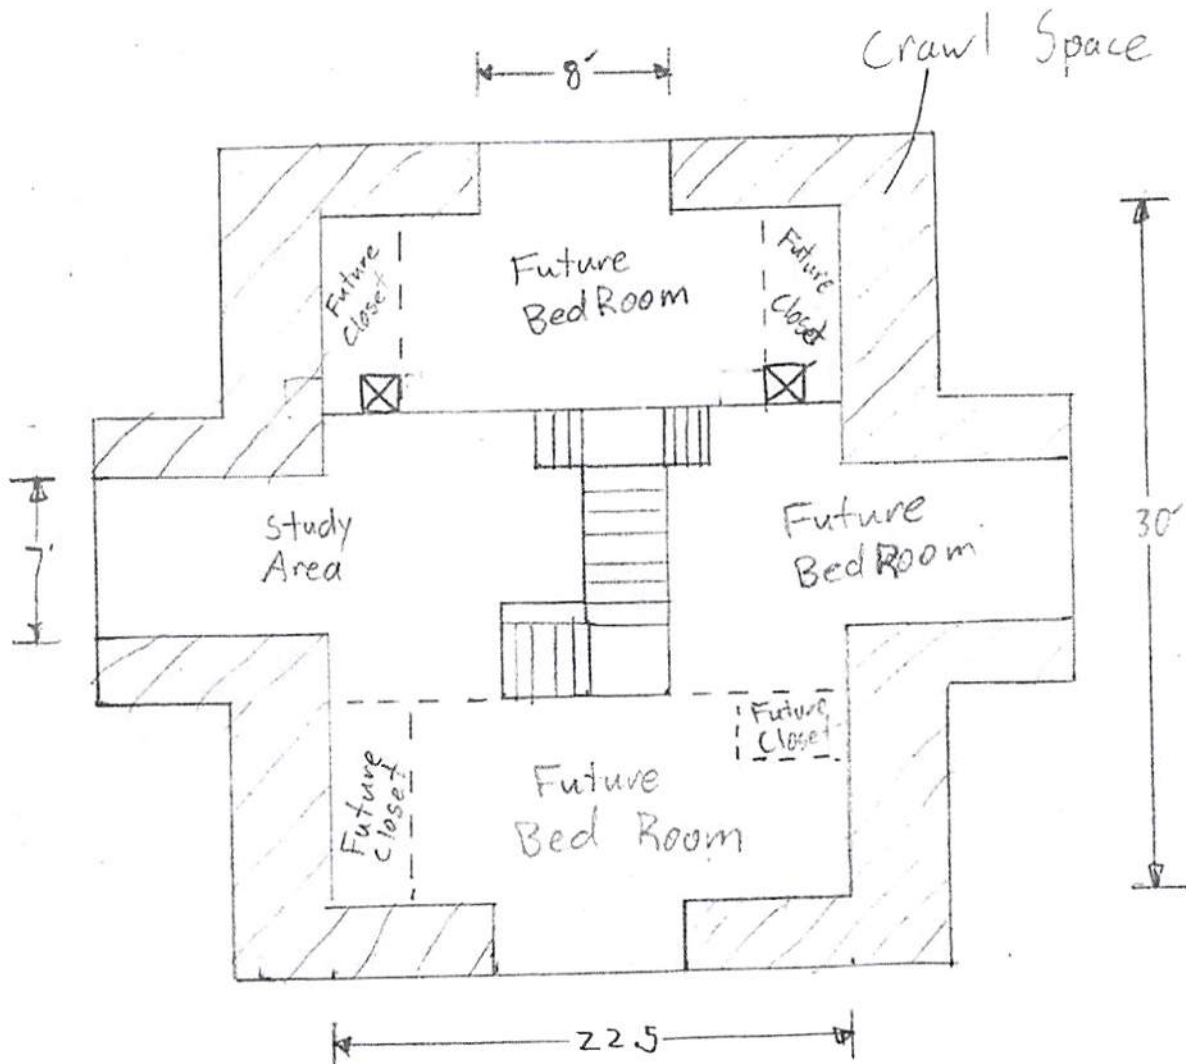 8'
Crawl Space
Future
Closet
Future
BedRoom
Future
Closet
Study
Area
Future
BedRoom
7'
30'
Future
Closet
Future
Bed Room
Future
Closet
22.5